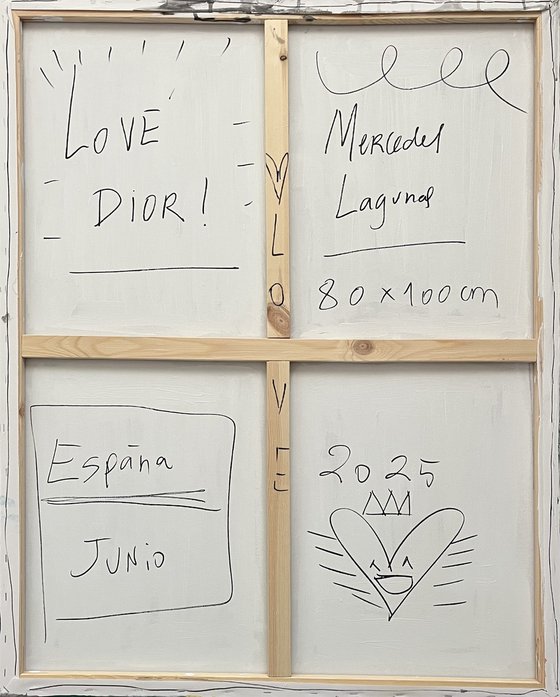 LOVE
DIOR!
Mercedes
Lagunas
80x100cm
LOVE
España
JUNIO
2025